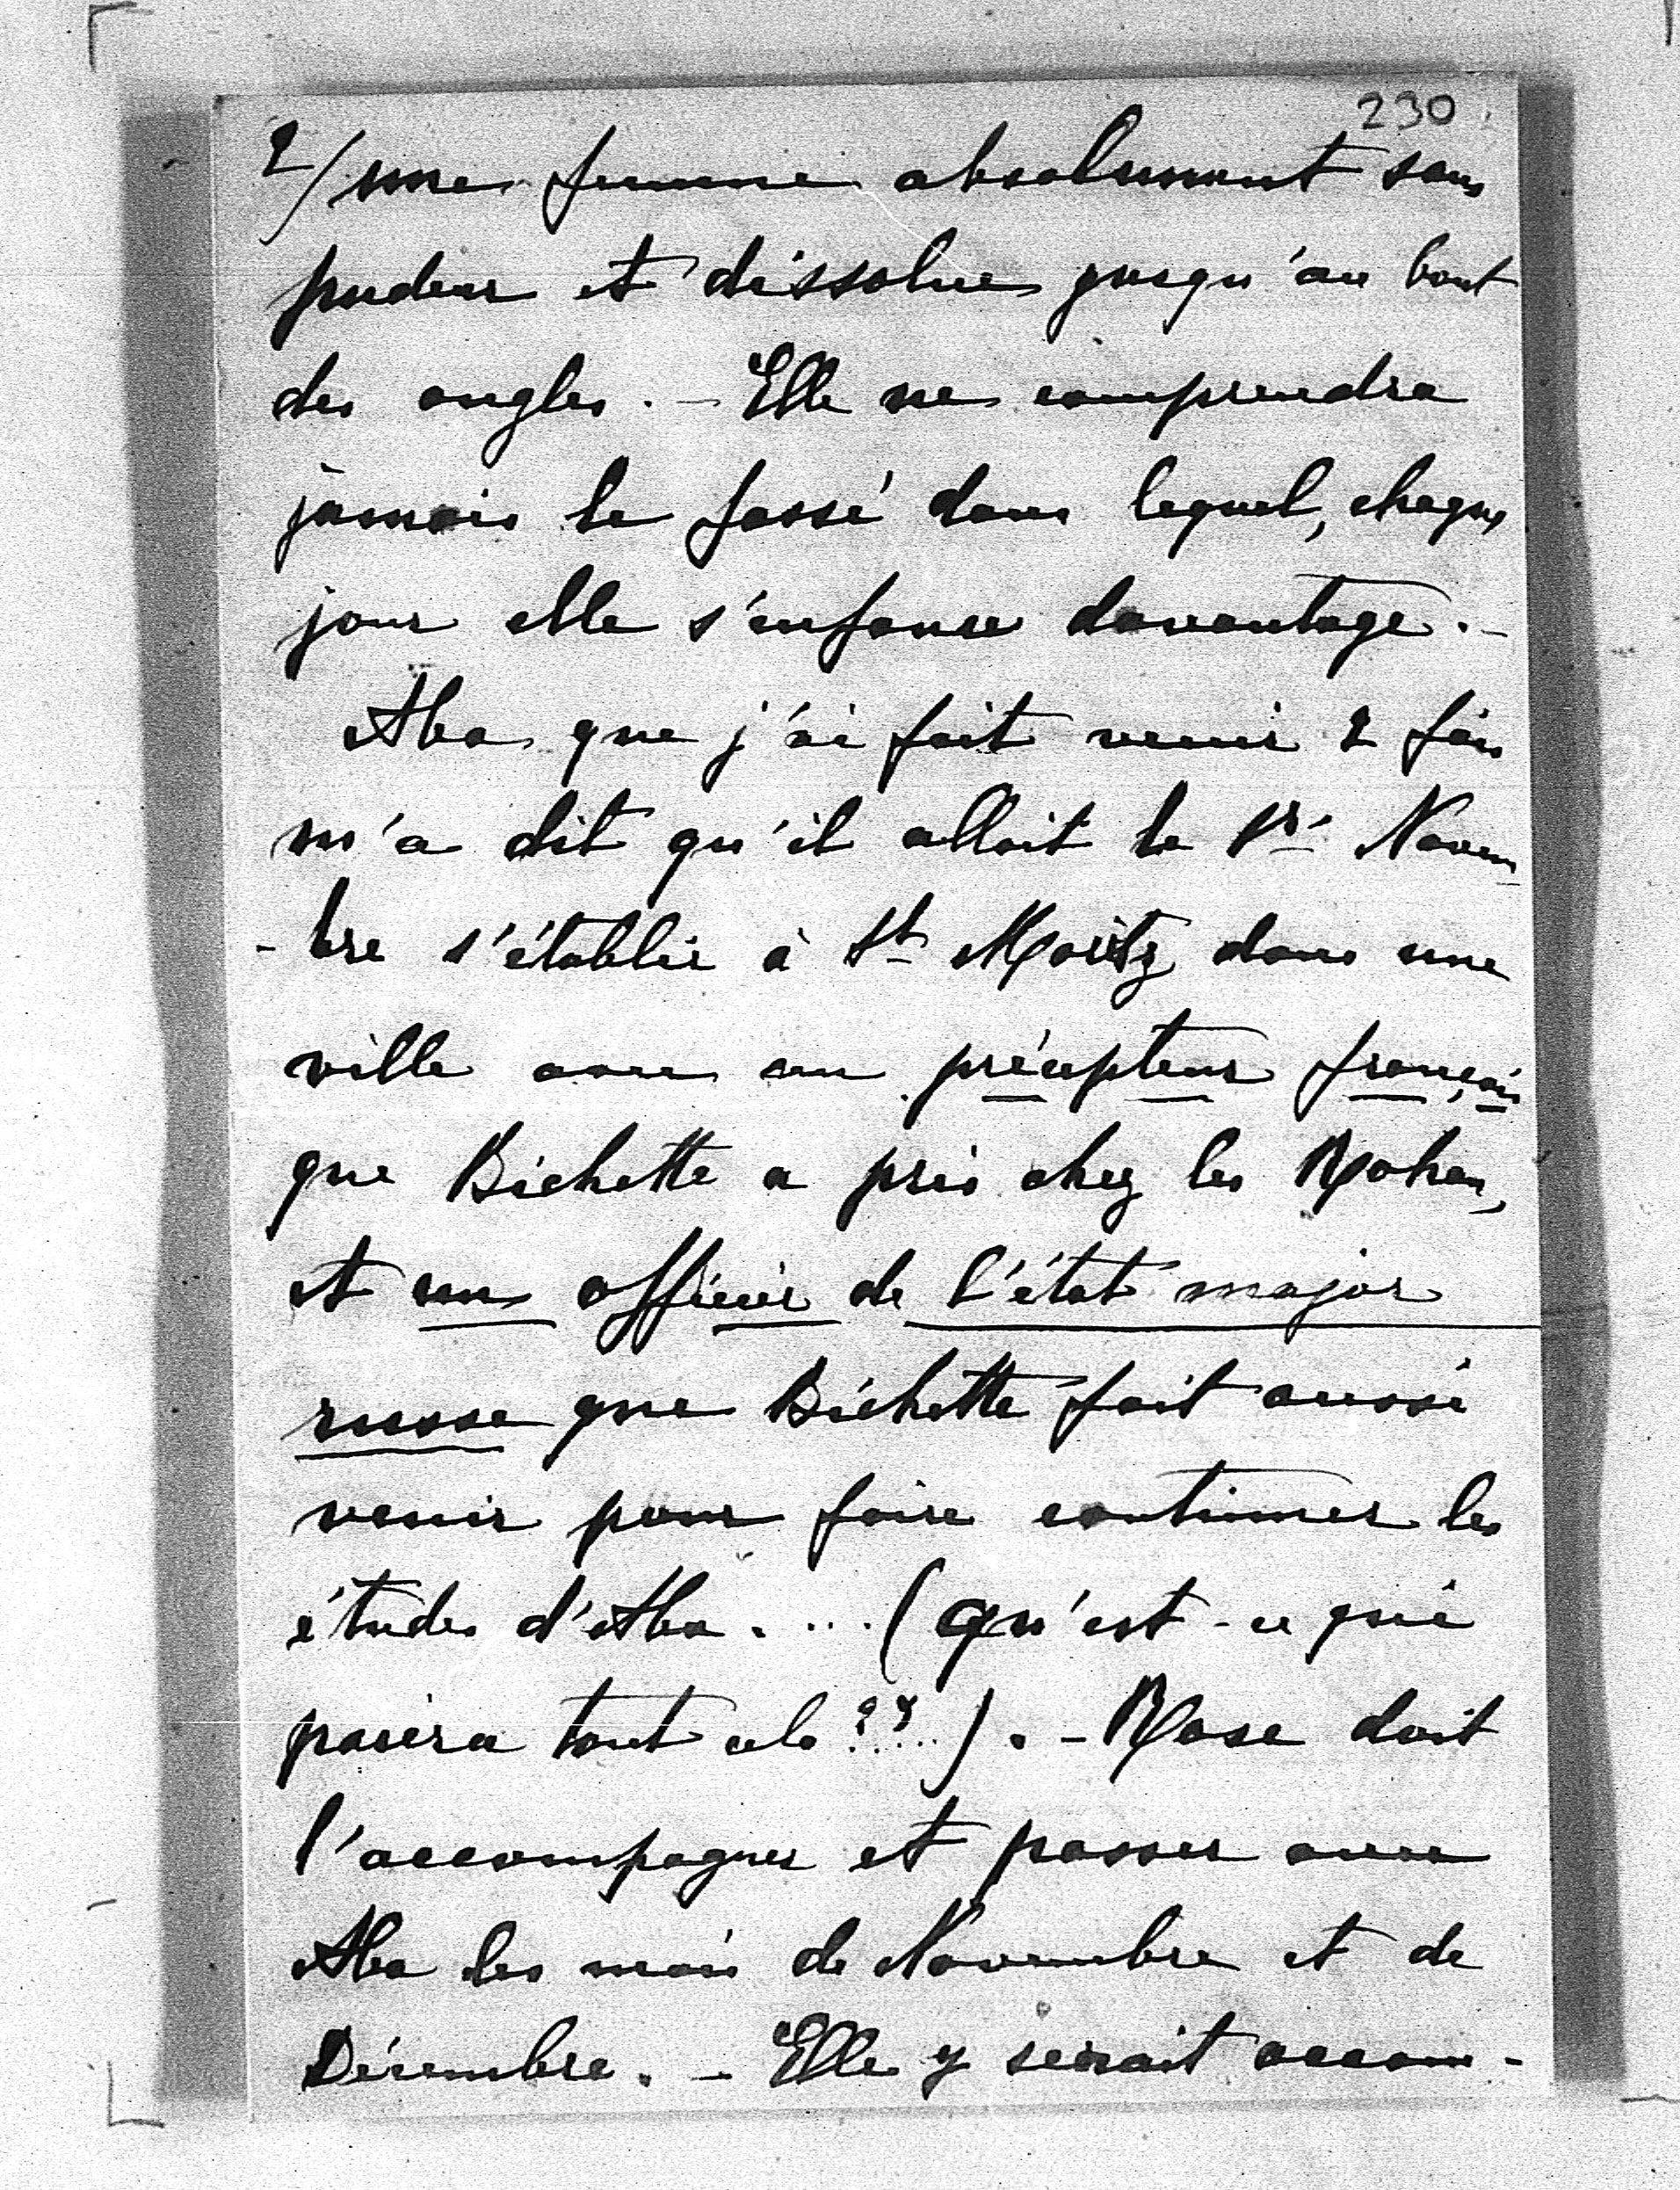 230
2/ une femme absolument sans
pudeur et dissolue jusqu'au bout
des ongles. - Elle ne comprendra
jamais le fossé dans lequel, chaque
jour elle s'enfonce davantage. -
Aba que j'ai fait venir 2 fois
m'a dit qu'il allait le 1r. Novem
- bre s'établir à St Moritz dans une
ville avec un précepteur français
que Bichette a pris chez les Rohan,
et un officier de l'état major
russe que Bichette fait aussi
venir pour faire continuer les
études d'Aba. ... (qu'est-ce qui
paiera tout cela ??...). - Rose doit
l'accompagner et passer avec
Aba les mois de Novembre et de
Décembre. - Elle y serait accom-